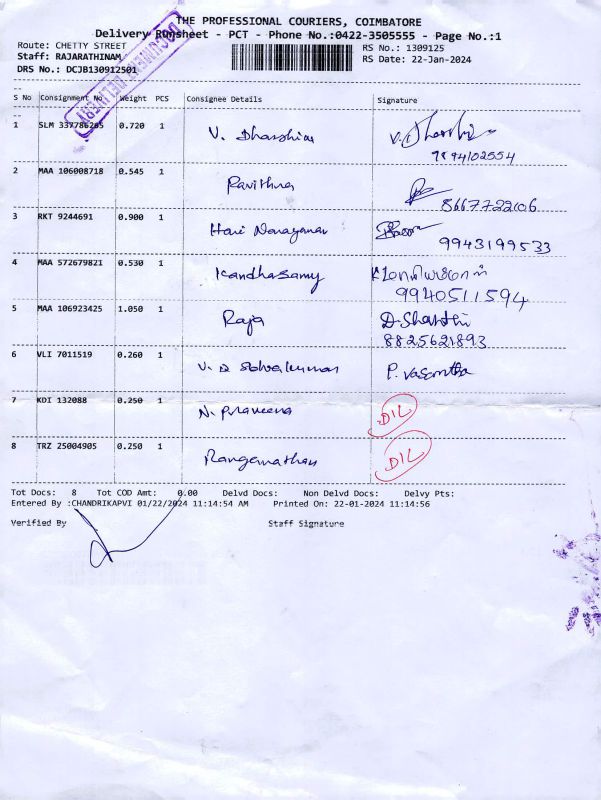 THE PROFESSIONAL COURIERS, COIMBATORE
Delivery Runsheet - PCT - Phone No.:0422-3505555 - Page No.:1
Route: CHETTY STREET RS No.: 1309125
Staff: RAJARATHINAM RS Date: 22-Jan-2024
DRS No.: DCJB130912501
S No Consignment No Weight PCS Consignee Details Signature
1 SLM 337786265 0.720 1 V. Dharshini V. Dharshini
7894102554
2 MAA 106008718 0.545 1 Pavithra
8667722106
3 RKT 9244691 0.900 1 Hari Narayanan
9943199533
4 MAA 572679821 0.530 1 Kandhasamy
9940511594
5 MAA 106923425 1.050 1 Raja D. Shanthi
8825621893
6 VLI 7011519 0.260 1 P. Vasantha
7 KDI 132088 0.250 1 N. Praveena DIL
8 TRZ 25004905 0.250 1 Ranganathan DIL
Tot Docs: 8 Tot COD Amt: 0.00 Delvd Docs: Non Delvd Docs: Delvy Pts:
Entered By :CHANDRIKAPVI 01/22/2024 11:14:54 AM Printed On: 22-01-2024 11:14:56
Verified By Staff Signature